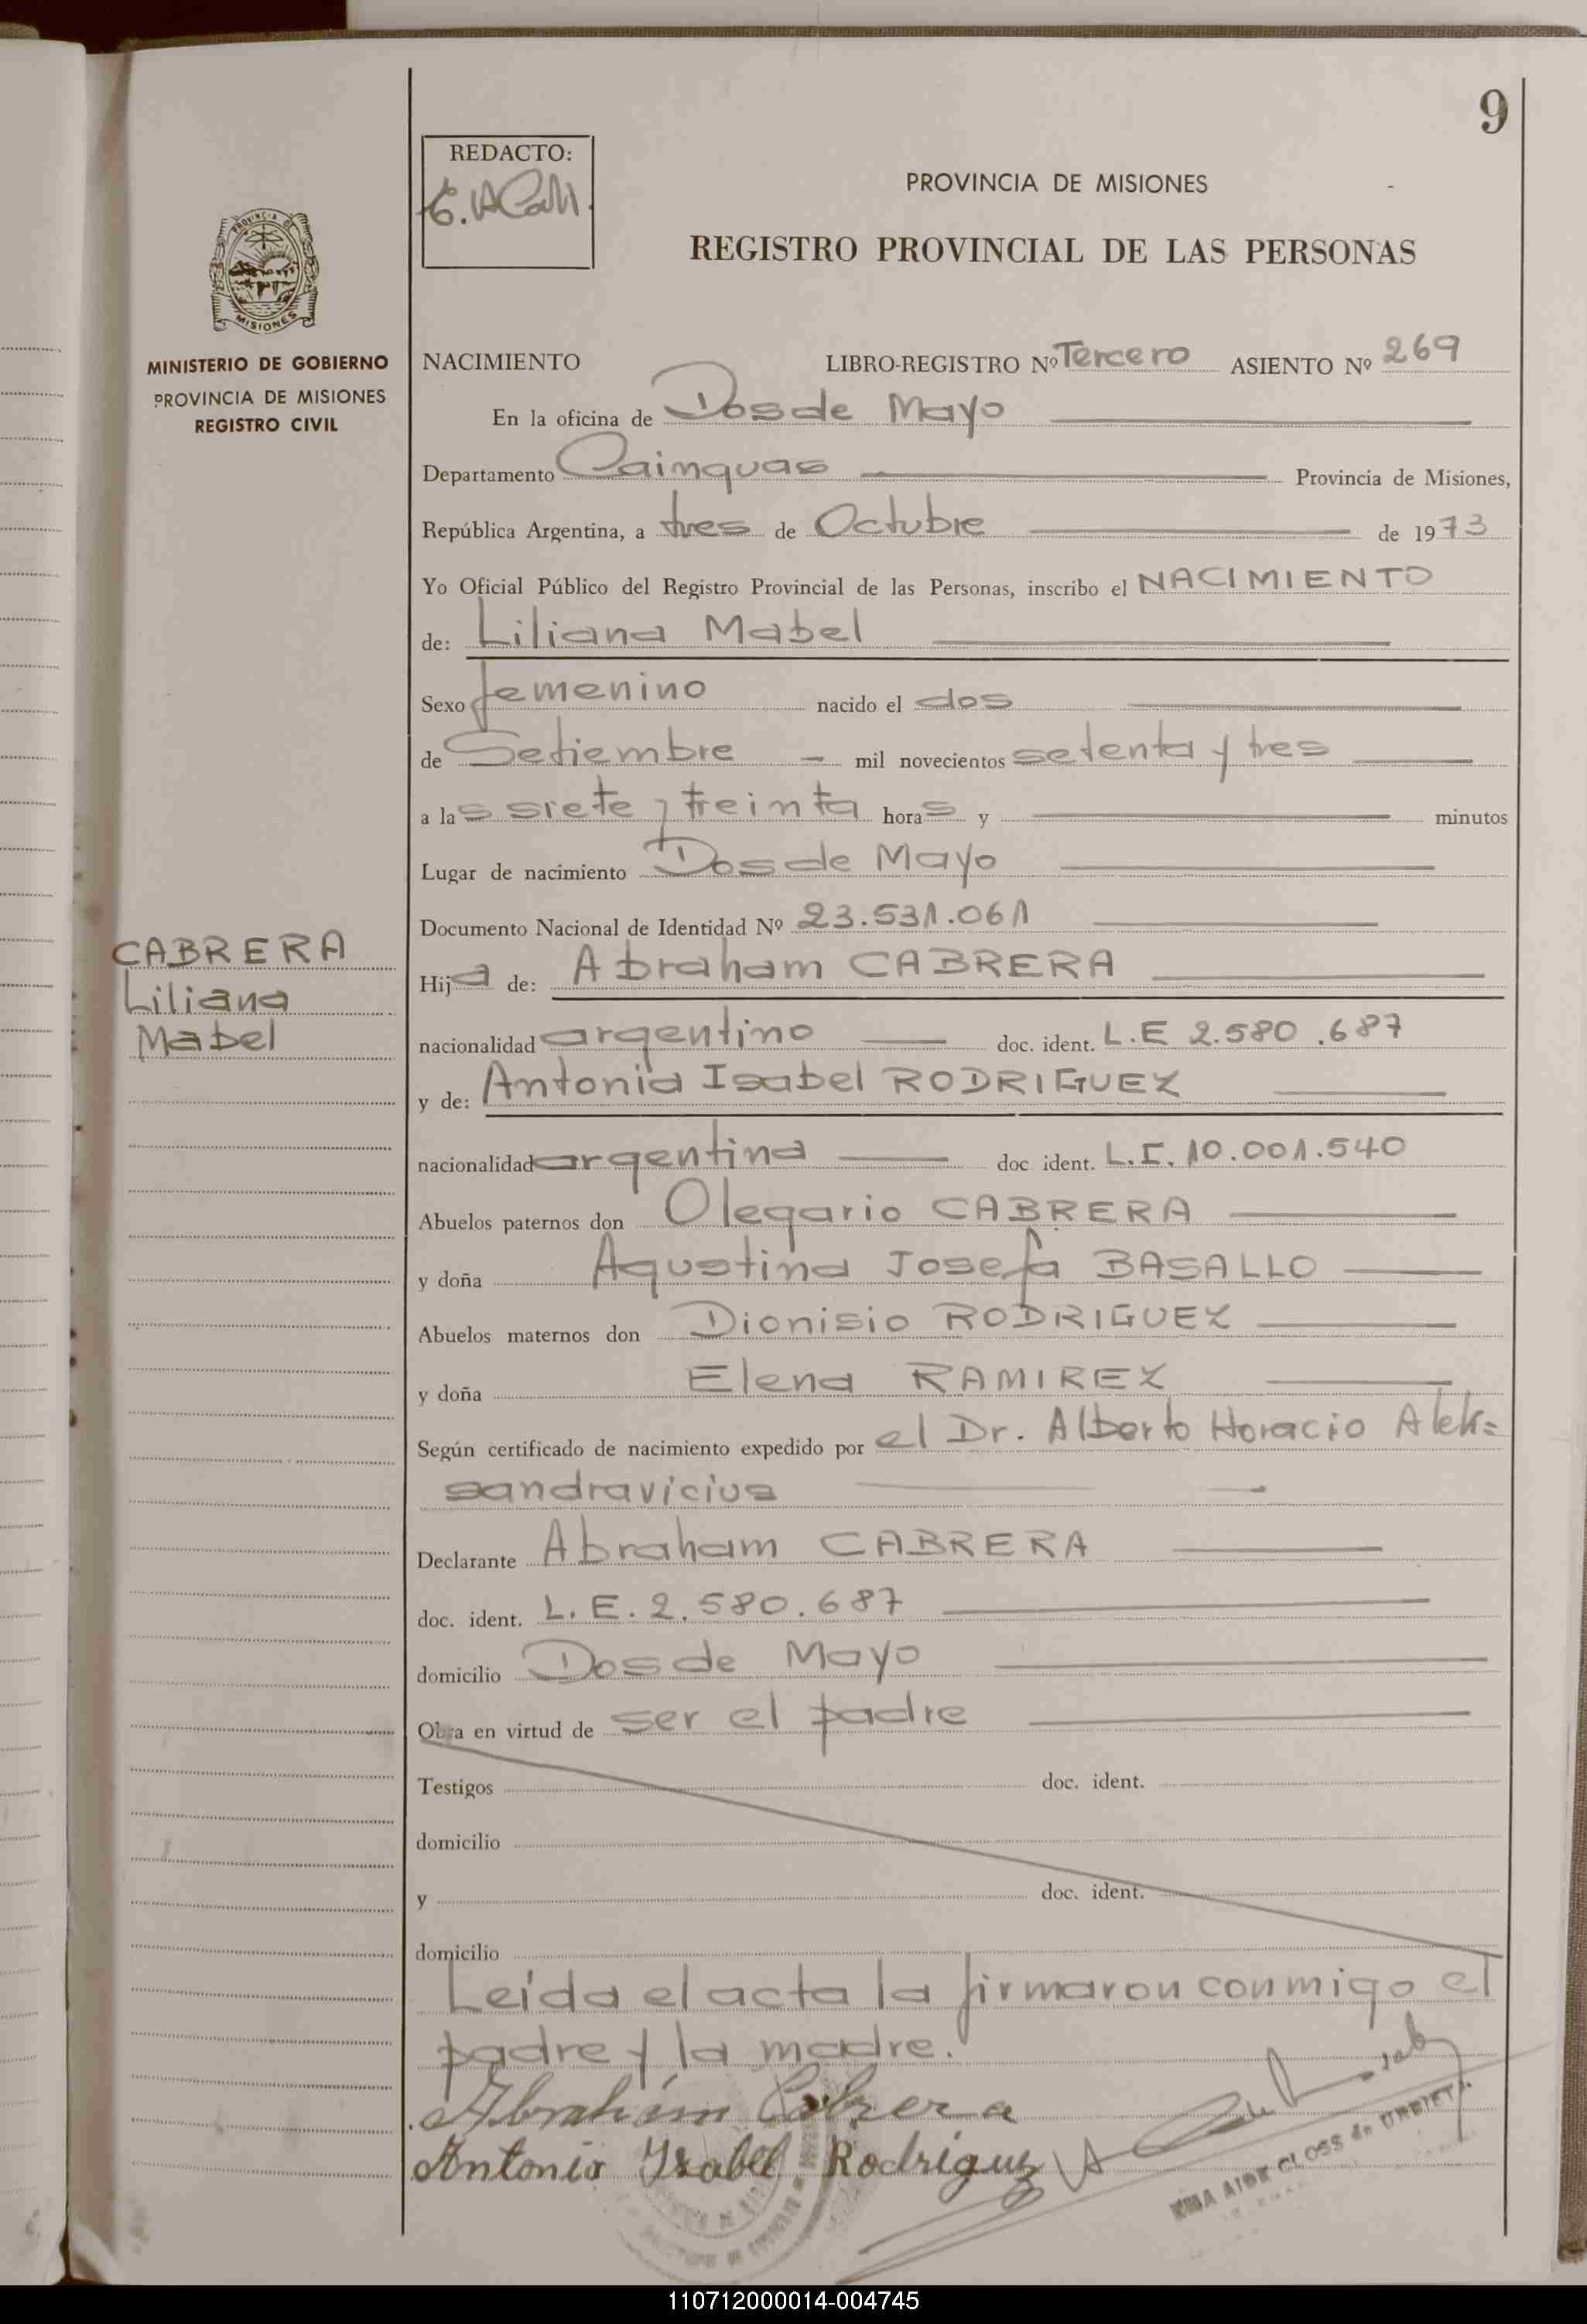 9
REDACTO:
PROVINCIA DE MISIONES
REGISTRO PROVINCIAL DE LAS PERSONAS
PROVINCIA DE
MISIONES
MINISTERIO DE GOBIERNO
PROVINCIA DE MISIONES
REGISTRO CIVIL
NACIMIENTO LIBRO-REGISTRO Nº Tercero ASIENTO Nº 269
En la oficina de Dos de Mayo
Departamento Cainguas Provincia de Misiones,
República Argentina, a tres de Octubre de 1973
Yo Oficial Público del Registro Provincial de las Personas, inscribo el NACIMIENTO
de: Liliana Mabel
Sexo femenino nacido el dos
de Setiembre - mil novecientos setenta y tres
a las siete y treinta horas y minutos
Lugar de nacimiento Dos de Mayo
Documento Nacional de Identidad Nº 23.531.061
CABRERA
Liliana
Mabel
Hija de: Abraham CABRERA
nacionalidad argentino doc. ident. L.E 2.580.687
y de: Antonia Isabel RODRIGUEZ
nacionalidad argentina doc ident. L.C. 10.001.540
Abuelos paternos don Olegario CABRERA
y doña Agustina Josefa BASALLO
Abuelos maternos don Dionisio RODRIGUEZ
y doña Elena RAMIREZ
Según certificado de nacimiento expedido por el Dr. Alberto Horacio Alek=
sandravicius
Declarante Abraham CABRERA
doc. ident. L.E.2.580.687
domicilio Dos de Mayo
Obra en virtud de ser el padre
Testigos doc. ident.
domicilio
y doc. ident.
domicilio
Leída el acta la firmaron conmigo el
padre y la madre.
Abrahám Cabrera
Antonia Ysabel Rodriguz
CLOSS de URRIETA
110712000014-004745